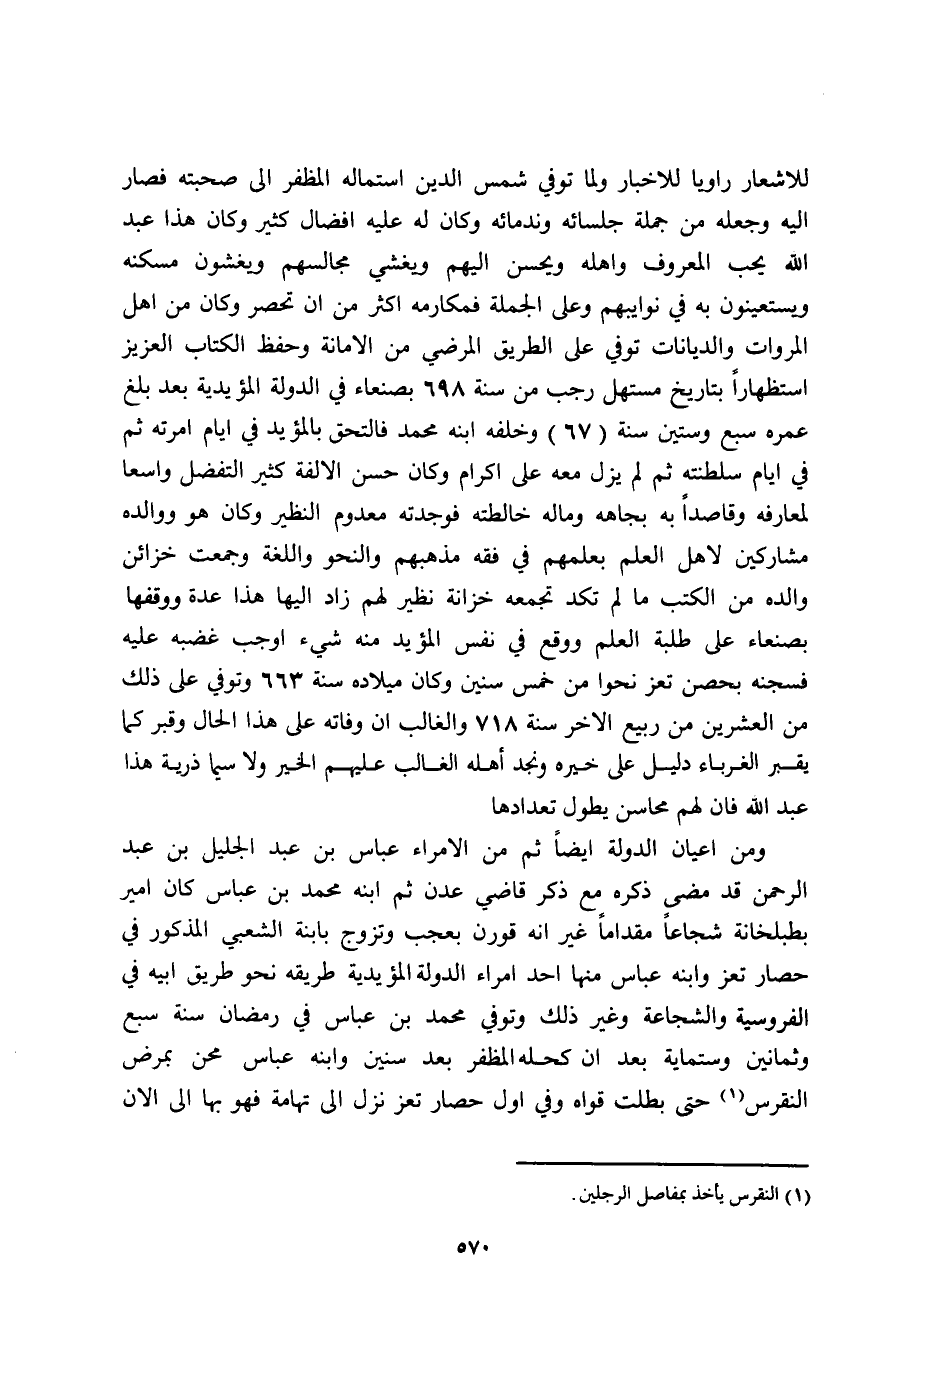 للاشعار راويا للاخبار ولما توفي شمس الدين استماله المظفر الى صحبته فصار
اليه وجعله من جملة جلسائه وندمائه وكان له عليه افضال كثير وكان هذا عبد
الله يحب المعروف واهله ويحسن اليهم ويغشي مجالسهم ويغشون مسكنه
ويستعينون به في نوايبهم وعلى الجملة فمكارمه اكثر من ان تحصر وكان من اهل
المروات والديانات توفي على الطريق المرضي من الامانة وحفظ الكتاب العزيز
استظهاراً بتاريخ مستهل رجب من سنة ٦٩٨ بصنعاء في الدولة المؤيدية بعد بلغ
عمره سبع وستين سنة ( ٦٧ ) وخلفه ابنه محمد فالتحق بالمؤيد في ايام امرته ثم
في ايام سلطنته ثم لم يزل معه على اكرام وكان حسن الالفة كثير التفضل واسعا
لمعارفه وقاصداً به بجاهه وماله خالطته فوجدته معدوم النظير وكان هو ووالده
مشاركين لاهل العلم بعلمهم في فقه مذهبهم والنحو واللغة وجمعت خزائن
والده من الكتب ما لم تكد تجمعه خزانة نظير لهم زاد اليها هذا عدة ووقفها
بصنعاء على طلبة العلم ووقع في نفس المؤيد منه شيء اوجب غضبه عليه
فسجنه بحصن تعز نحوا من خمس سنين وكان ميلاده سنة ٦٦٣ وتوفي على ذلك
من العشرين من ربيع الاخر سنة ٧١٨ والغالب ان وفاته على هذا الحال وقبر كما
يقبر الغرباء دليل على خيره ونجد أهله الغالب عليهم الخير ولا سيما ذرية هذا
عبد الله فان لهم محاسن يطول تعدادها
ومن اعيان الدولة ايضاً ثم من الامراء عباس بن عبد الجليل بن عبد
الرحمن قد مضى ذكره مع ذكر قاضي عدن ثم ابنه محمد بن عباس كان امير
بطبلخانة شجاعاً مقداماً غير انه قورن بعجب وتزوج بابنة الشعبي المذكور في
حصار تعز وابنه عباس منها احد امراء الدولة المؤيدية طريقه نحو طريق ابيه في
الفروسية والشجاعة وغير ذلك وتوفي محمد بن عباس في رمضان سنة سبع
وثمانين وستماية بعد ان كحله المظفر بعد سنين وابنه عباس محن بمرض
النقرس(١) حتى بطلت قواه وفي اول حصار تعز نزل الى تهامة فهو بها الى الان
(١) النقرس يأخذ بمفاصل الرجلين .
٥٧٠